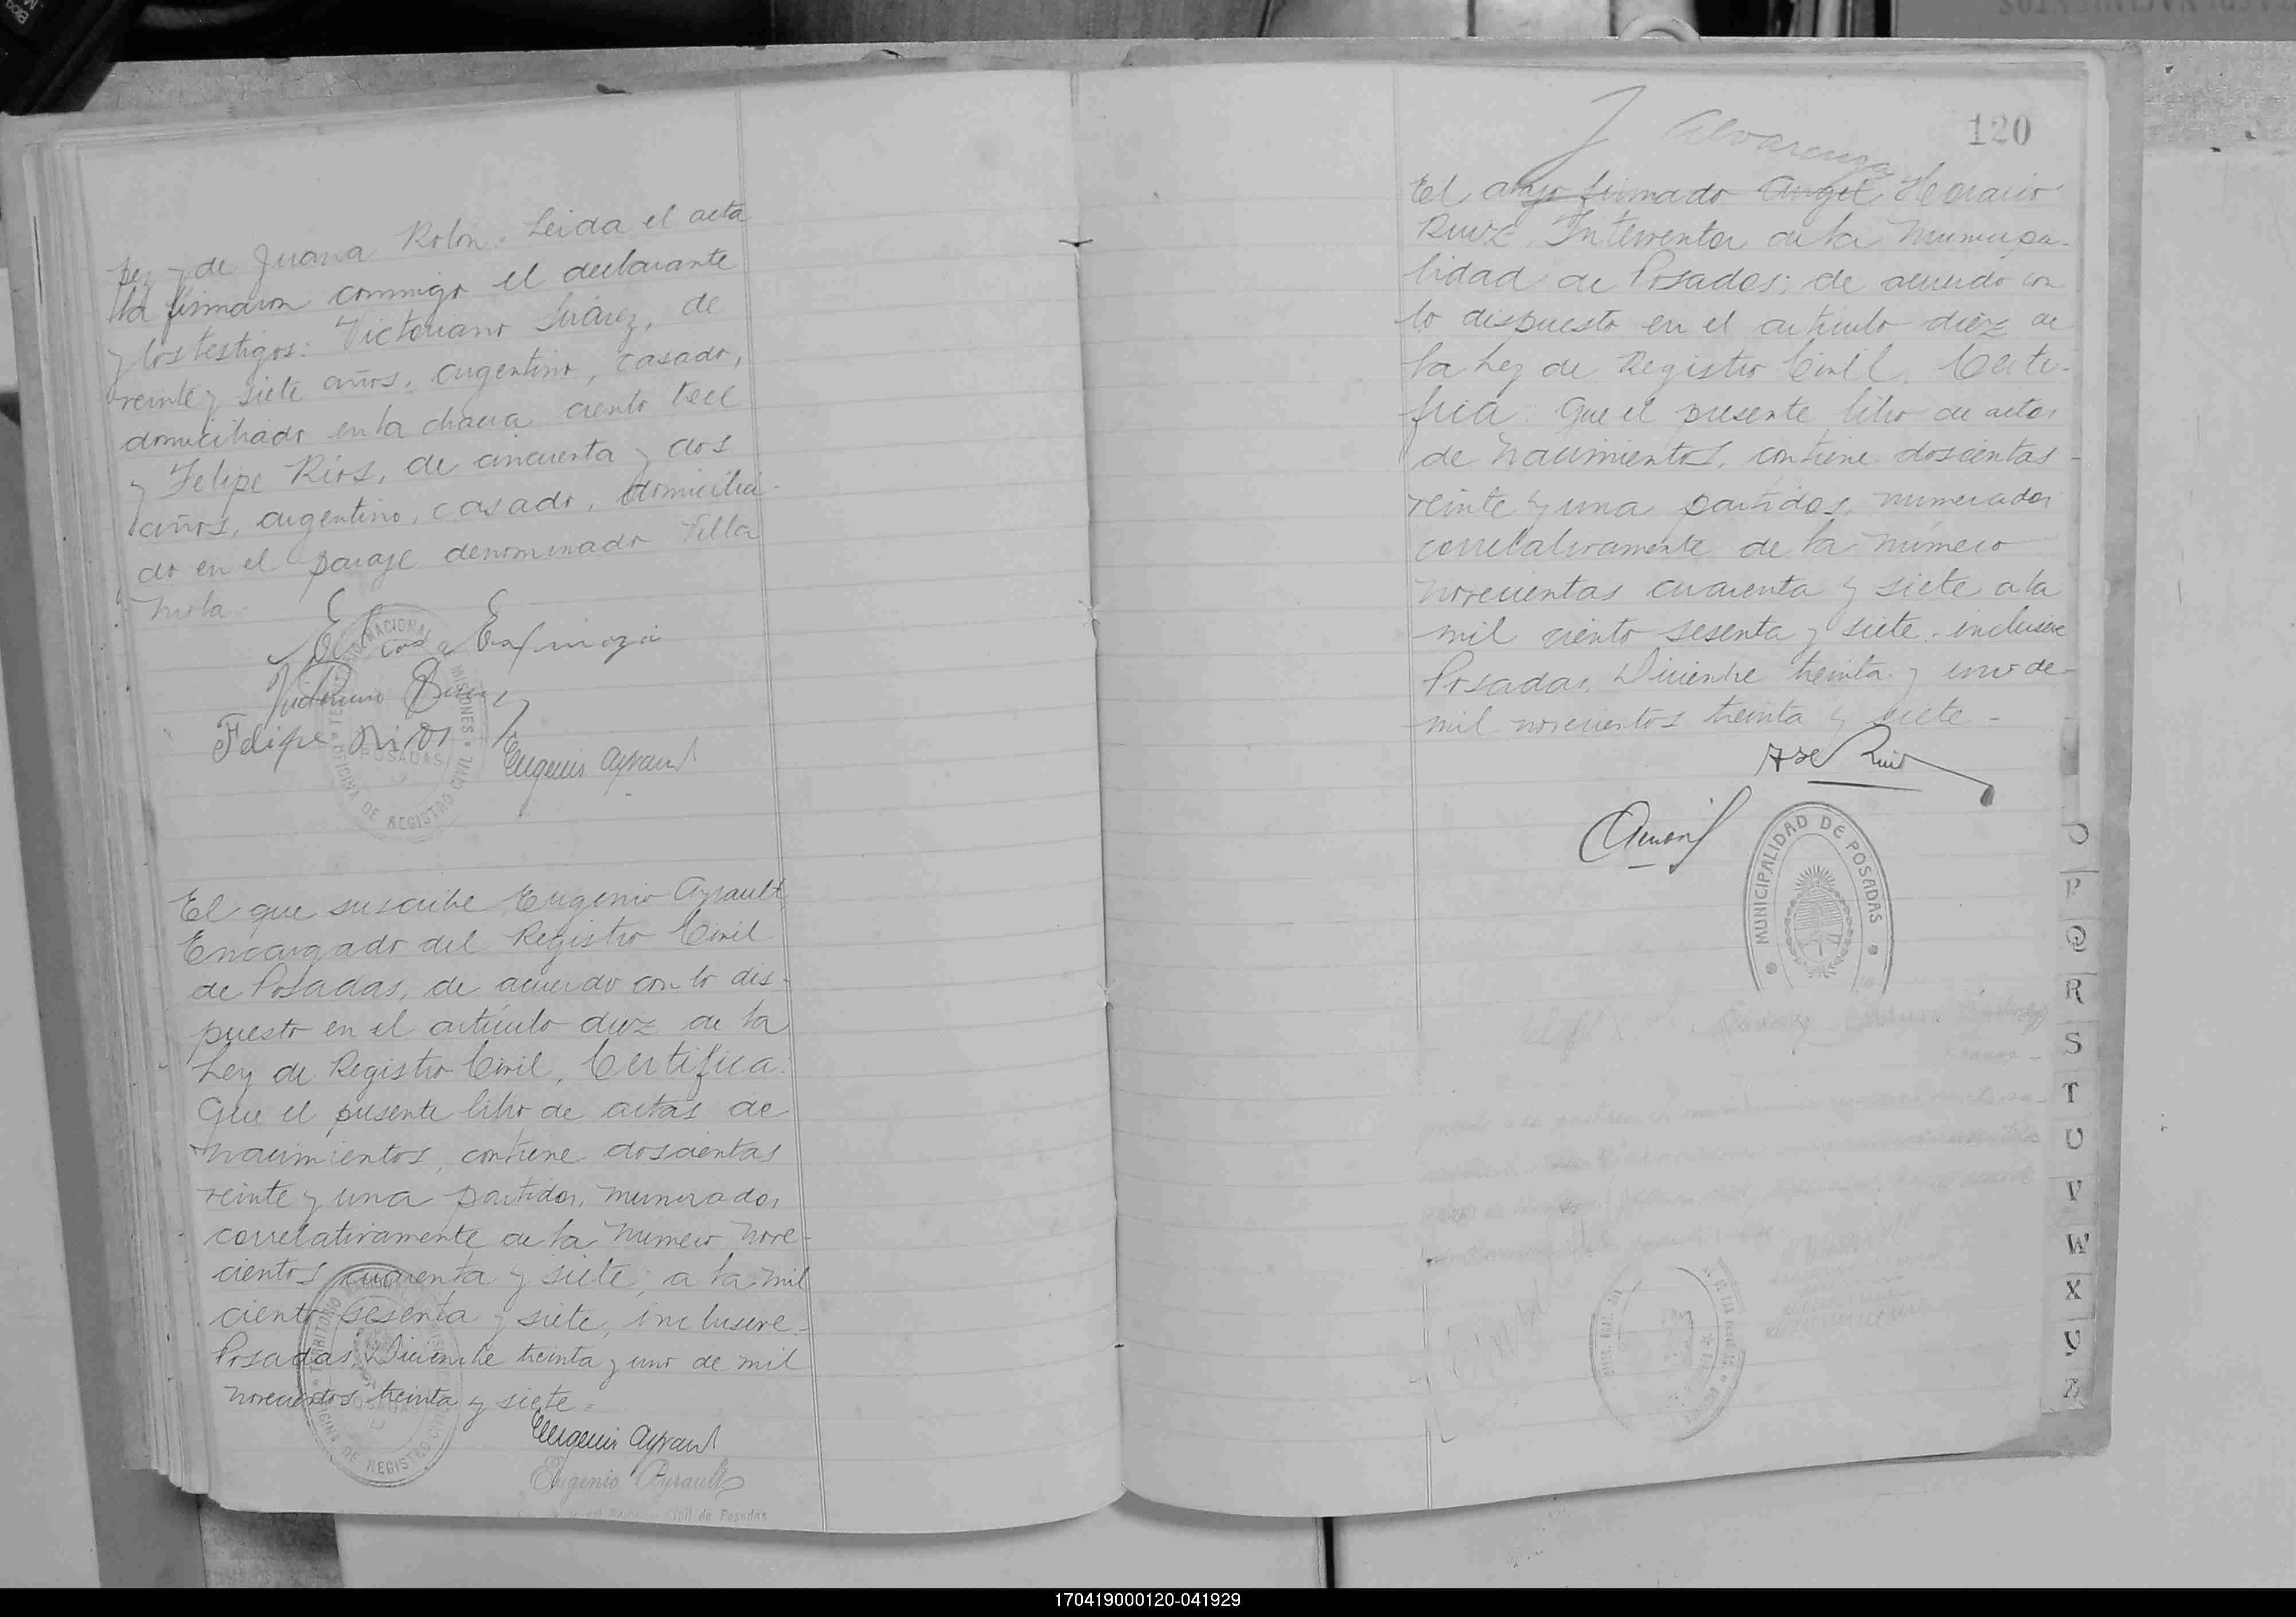 pez y de Juana Rolón. Leida el acta
la firmaron conmigo el declarante
y los testigos: Victoriano Suárez, de
veinte y siete años, argentino, casado,
domiciliado en la chacra ciento trece
y Felipe Ríos, de cincuenta y dos
años, argentino, casado, domicilia-
do en el paraje denominado Villa
Mola
Elias Espinoza
Victoriano Suarez
Felipe Rios
Eugenio Ayrault
TERRITORIO NACIONAL DE MISIONES
POSADAS
OFICINA DE REGISTRO CIVIL
El que suscribe Eugenio Ayrault,
Encargado del Registro Civil
de Posadas, de acuerdo con lo dis-
puesto en el artículo diez de la
Ley de Registro Civil, Certifica:
Que el presente libro de actas de
nacimientos, contiene doscientas
veinte y una partidas, numeradas
correlativamente de la número nove-
cientos cuarenta y siete, a la mil
ciento sesenta y siete, inclusive.
Posadas, Diciembre treinta y uno de mil
novecientos treinta y siete.
Eugenio Ayrault
Eugenio Ayrault
Civil de Posadas
POSADAS
OFICINA DE REGISTRO CIVIL
120
J Alvarenga
El abajo firmado Angel Horacio
Ruiz, Interventor de la Municipa-
lidad de Posadas; de acuerdo con
lo dispuesto en el artículo diez de
la Ley de Registro Civil, Certi-
fica: Que el presente libro de actas
de Nacimientos, contiene doscientas
veinte y una partidas, numeradas
correlativamente de la número
novecientas cuarenta y siete a la
mil ciento sesenta y siete, inclusive
Posadas, Diciembre treinta y uno de
mil novecientos treinta y siete -
Ruiz
MUNICIPALIDAD DE POSADAS
O
P
Q
R
S
T
U
V
W
X
Y
Z
170419000120-041929